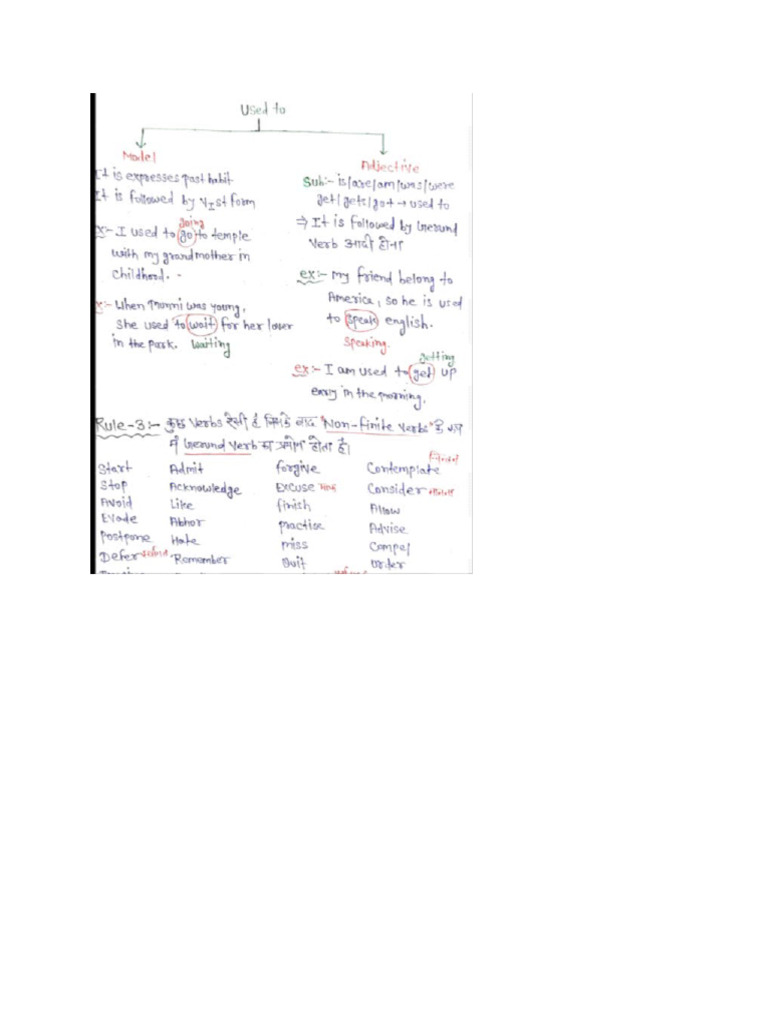 Used to
Model
It is expresses past habit
It is followed by VIst form
going
x:- I used to go to temple
with my grandmother in
childhood. -
x:- When Monni was young,
She used to wait for her lover
in the park. Waiting
Adjective
Sub:- is/are/am/was/were
get/gets/got → used to
⇒ It is followed by Gerund
Verb आदी होना
ex:- my friend belong to
America, so he is used
to speak english.
Speaking.
getting
ex:- I am used to get up
in the morning.
Rule-3:- कुछ Verbs ऐसी हैं जिसके बाद "Non-finite Verbs" के रूप
में Gerund Verb का प्रयोग होता है।
Start Admit forgive Contemplate
Stop Acknowledge Excuse Consider
Avoid Like finish Allow
Evade Abhor practise Advise
Postpone Hate miss Compel
Defer Remember Quit Order